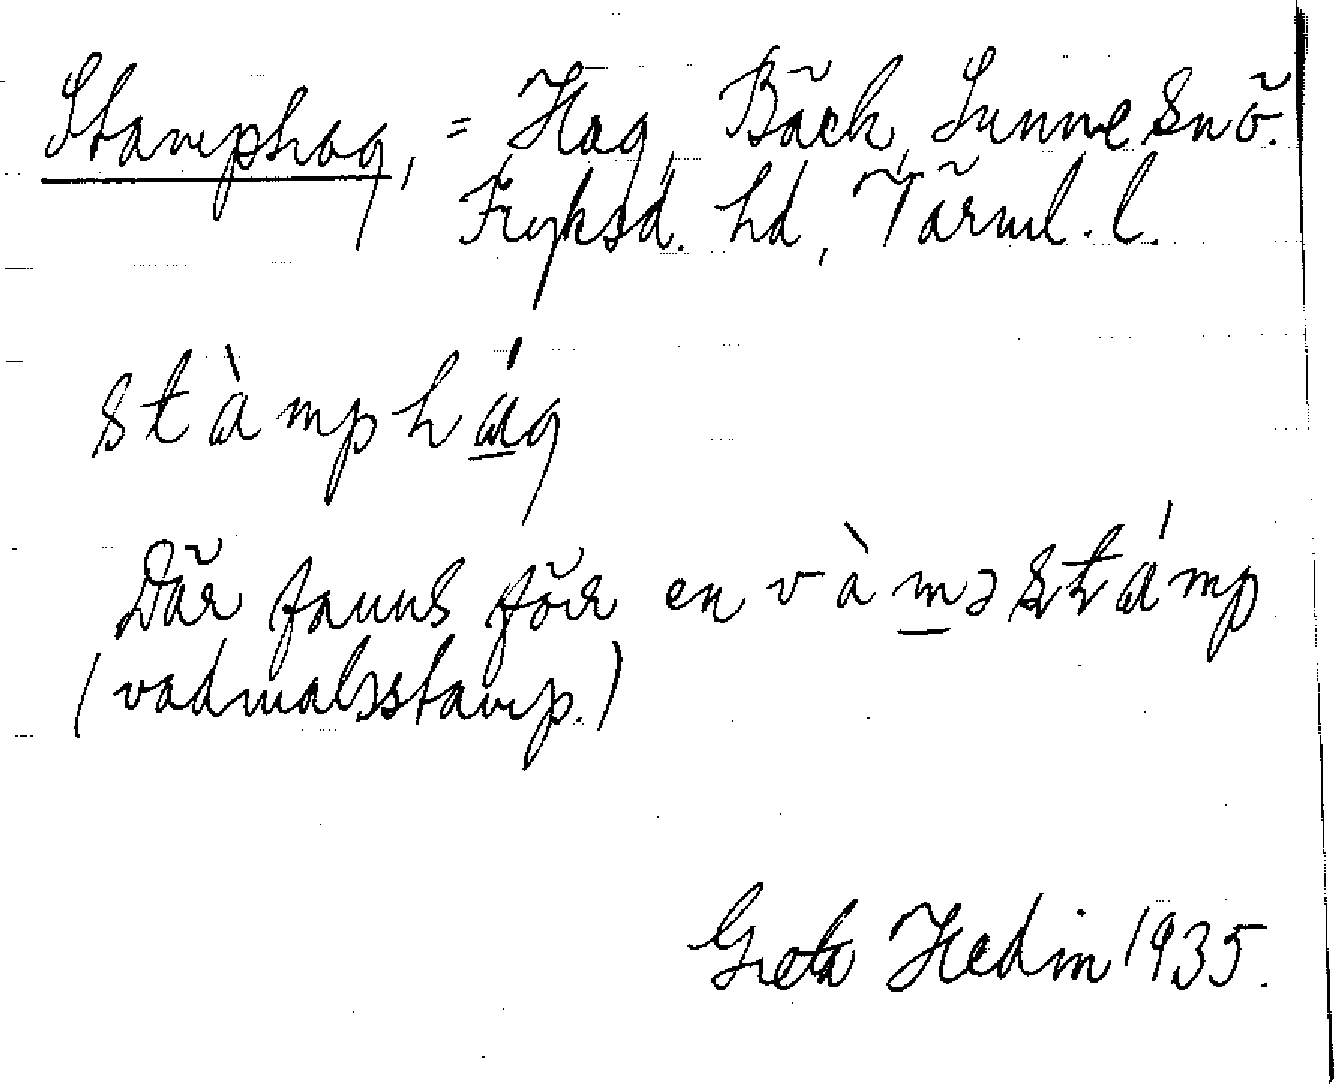 Stamphag, = Hag, Bäck, Sunne snö.
Fryksd. hd, Värml. l.
stàmphág
Där fanns förr en vàməstámp
(vadmalsstamp.)
Greta Hedin 1935.